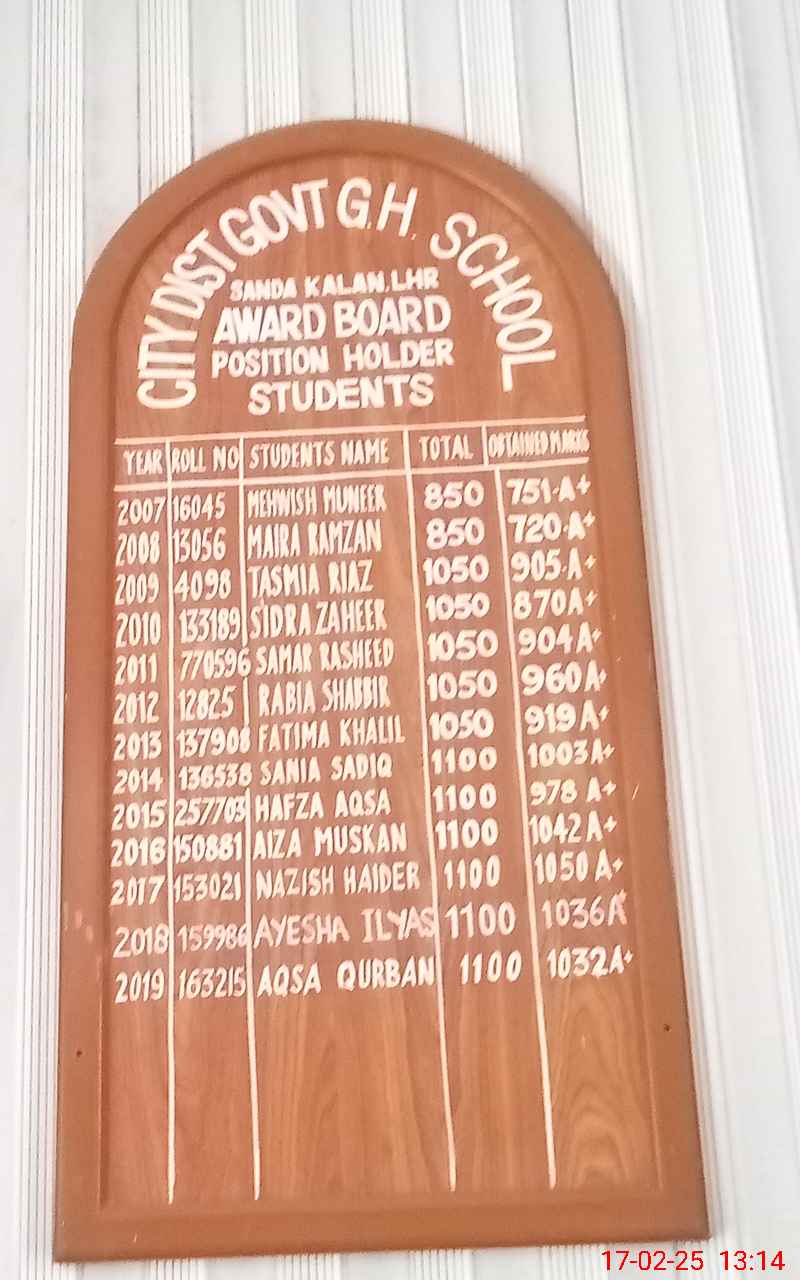 CITY DIST GOVT G.H. SCHOOL
SANDA KALAN.LHR
AWARD BOARD
POSITION HOLDER
STUDENTS
YEAR ROLL NO STUDENTS NAME TOTAL OBTAINED MARKS
2007 16045 MEHWISH MUNEER 850 751.A+
2008 13056 MAIRA RAMZAN 850 720.A+
2009 4098 TASMIA RIAZ 1050 905.A+
2010 133189 SIDRA ZAHEER 1050 870A+
2011 770596 SAMAR RASHEED 1050 904A+
2012 12825 RABIA SHABBIR 1050 960A+
2013 137908 FATIMA KHALIL 1050 919A+
2014 136538 SANIA SADIQ 1100 1003A+
2015 257703 HAFZA AQSA 1100 978 A+
2016 150881 AIZA MUSKAN 1100 1042A+
2017 153021 NAZISH HAIDER 1100 1050 A+
2018 159986 AYESHA ILYAS 1100 1036A+
2019 163215 AQSA QURBAN 1100 1032A+
17-02-25 13:14